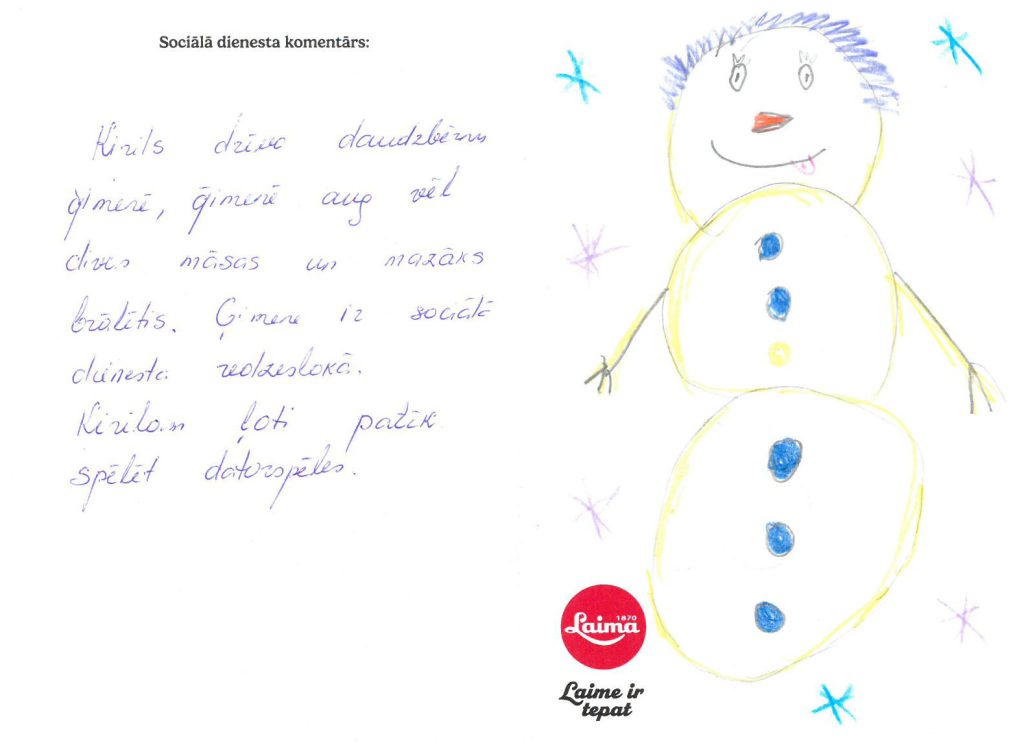 Sociālā dienesta komentārs:
Kirils dzīvo daudzbērnu
ģimenē, ģimenē aug vēl
divas māsas un mazāks
brālītis. Ģimene ir sociālā
dienesta redzeslokā.
Kirilam ļoti patīk
spēlēt datorspēles.
Laima
1870
Laime ir
tepat